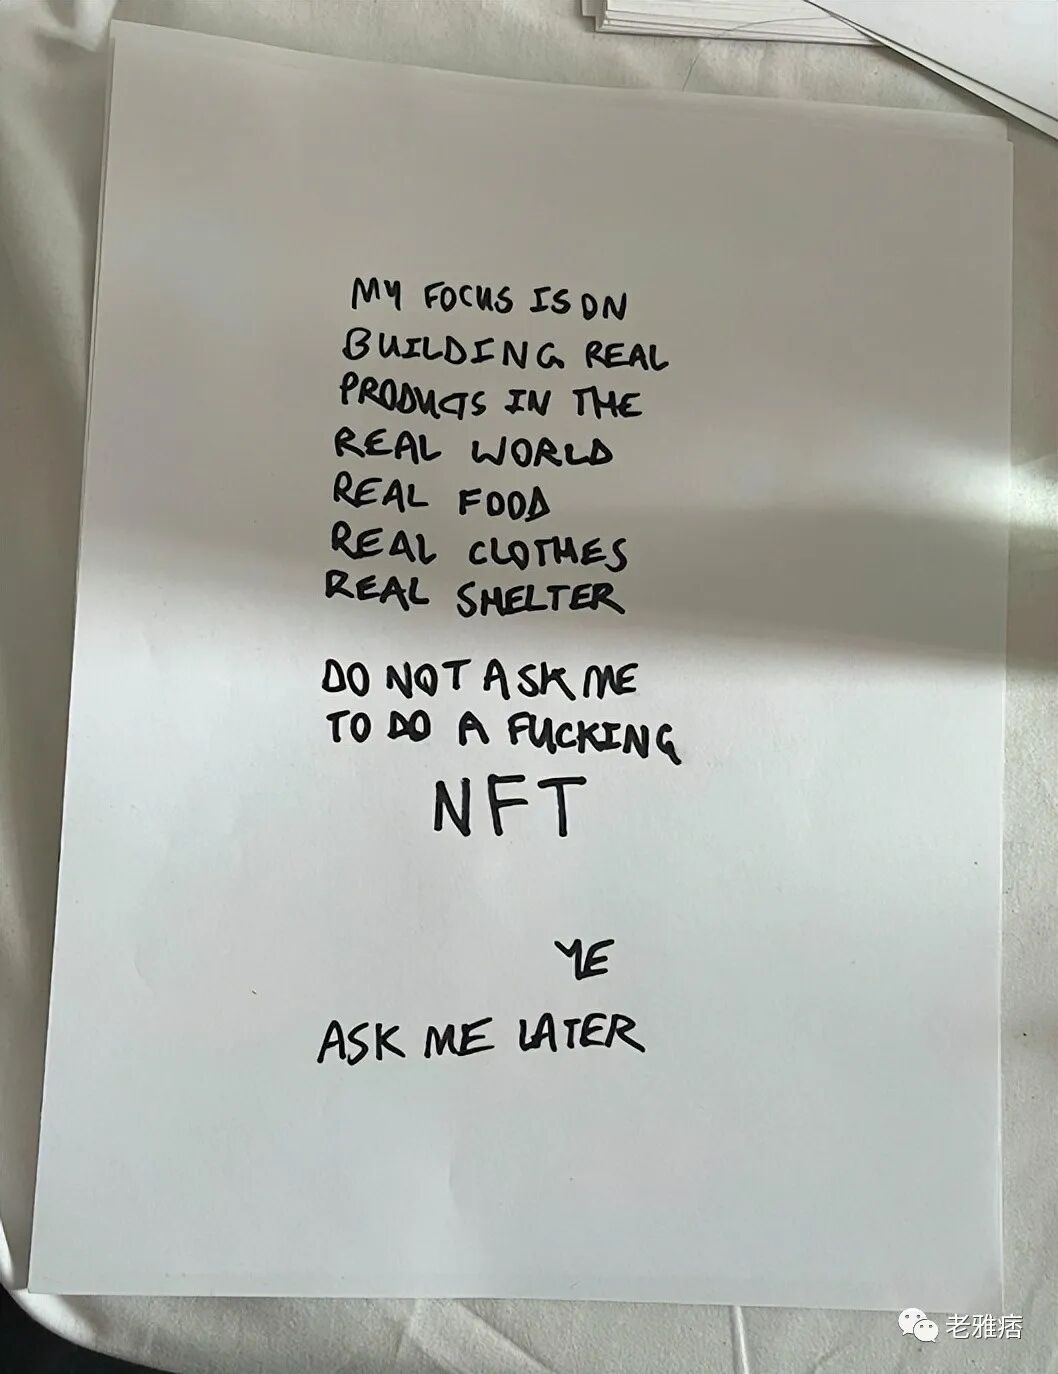 MY FOCUS IS ON
BUILDING REAL
PRODUCTS IN THE
REAL WORLD
REAL FOOD
REAL CLOTHES
REAL SHELTER
DO NOT ASK ME
TO DO A FUCKING
NFT
YE
ASK ME LATER
老雅痞